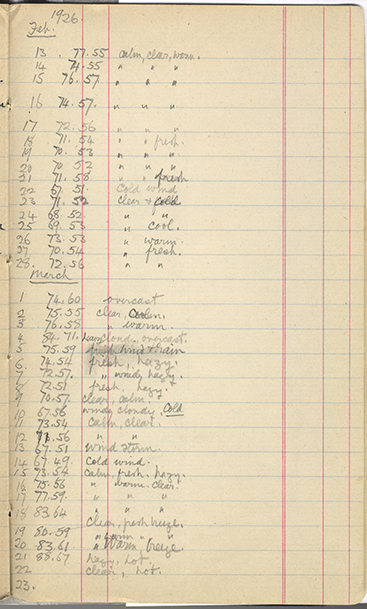 1926.
Feb.
13. 77.55 calm, clear, warm.
14 74.55 " " "
15 76.57 " " "
16 74.57. " " "
17 72.56 " " "
18 71.54 " " fresh.
19 70.53 " " "
20 70.52 " " "
21 71.58 " " fresh
22 67.51. cold wind
23 71.52 clear + cold
24 68.52. " "
25 69.53 " cool.
26 73.53 " warm.
27 70.54 " fresh.
28. 72.56 " "
March
1 74.60 overcast
2 75.55 clear,
3 76.58 " warm.
4 84.71. cloud, overcast.
5 75.59 fresh wind + rain
6 74.54 fresh, hazy.
7 72.57. " windy hazy.
8 72.51 fresh, hazy.
9 70.57. clear, calm.
10 67.56 windy cloudy. Cold
11 73.54 calm, clear.
12 .56 " "
13 67.51 wind storm.
14 67.49. cold wind.
15 73.54 calm, fresh, hazy.
16 75.56 " warm. clear.
17 77.59. " " "
18 83.64 " " "
clear, fresh breeze.
19 80.59 " warm " "
20 83.61 " Warm breeze
21 88.67 hazy, hot.
22 clear, hot.
23.